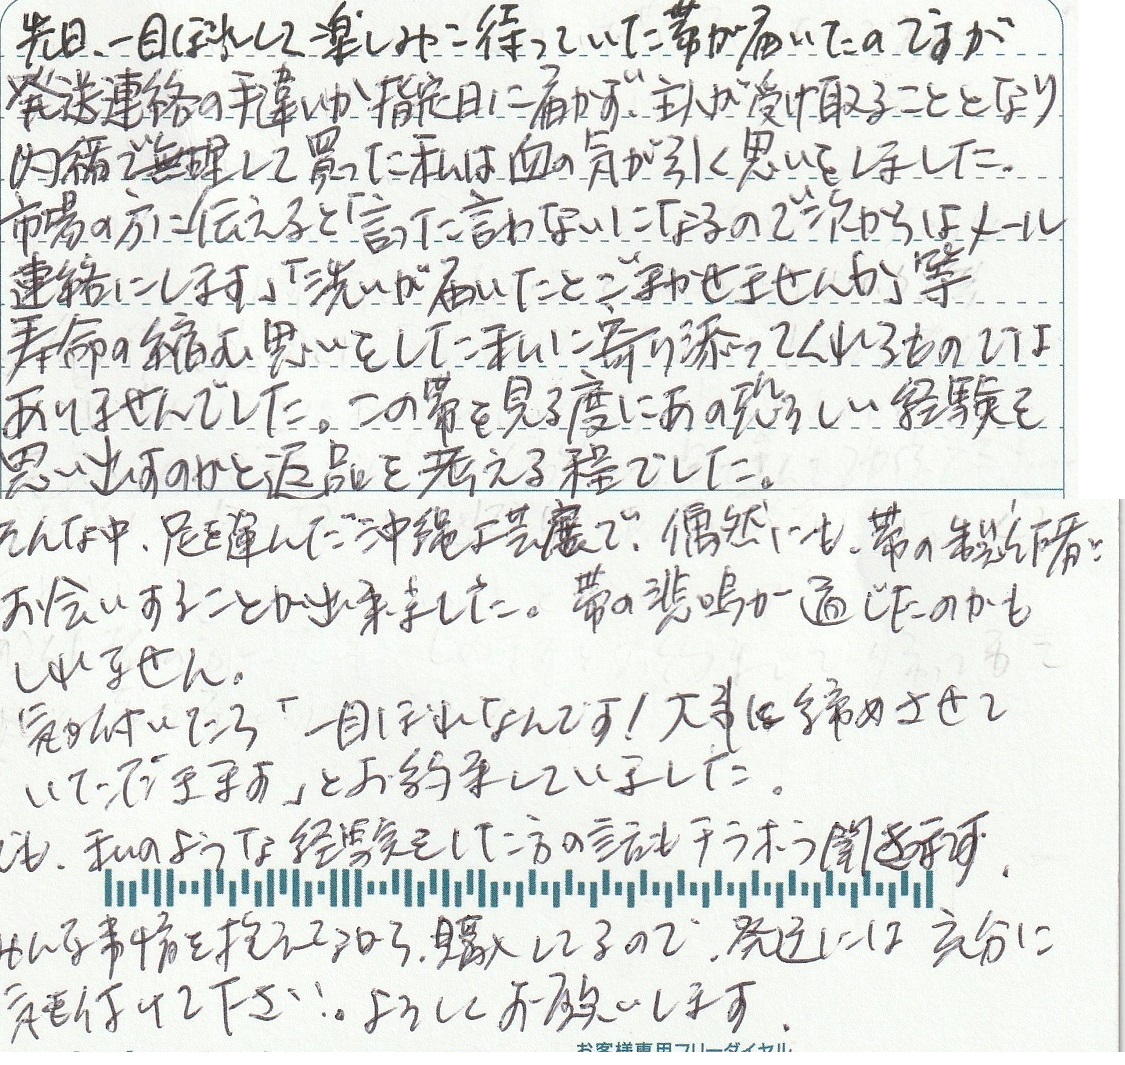 先日、一目ぼれして楽しみに待っていた帯が届いたのですが
発送連絡の手違いか指定日に届かず、主人が受け取ることとなり
内緒で無理して買った私は血の気が引く思いをしました。
市場の方に伝えると「言った言わないになるので次からはメール
連絡にします」「洗いが届いたとごまかせませんか」等
寿命の縮む思いをした私に寄り添ってくれるものでは
ありませんでした。この帯を見る度にあの恐ろしい経験を
思い出すのかと返品を考える程でした。
そんな中、足を運んだ沖縄工芸展で、偶然にも、帯の製作者に
お会いすることが出来ました。帯の悲鳴が通じたのかも
しれません。
気が付いたら「一目ぼれなんです!大事に締めさせて
いただきます」とお約束していました。
でも、私のような経験をした方の話もチラホラ聞きます。
みんな事情を抱えてるから、購入してるので、発送には充分に
気を付けて下さい。よろしくお願いします。
お客様専用フリーダイヤル